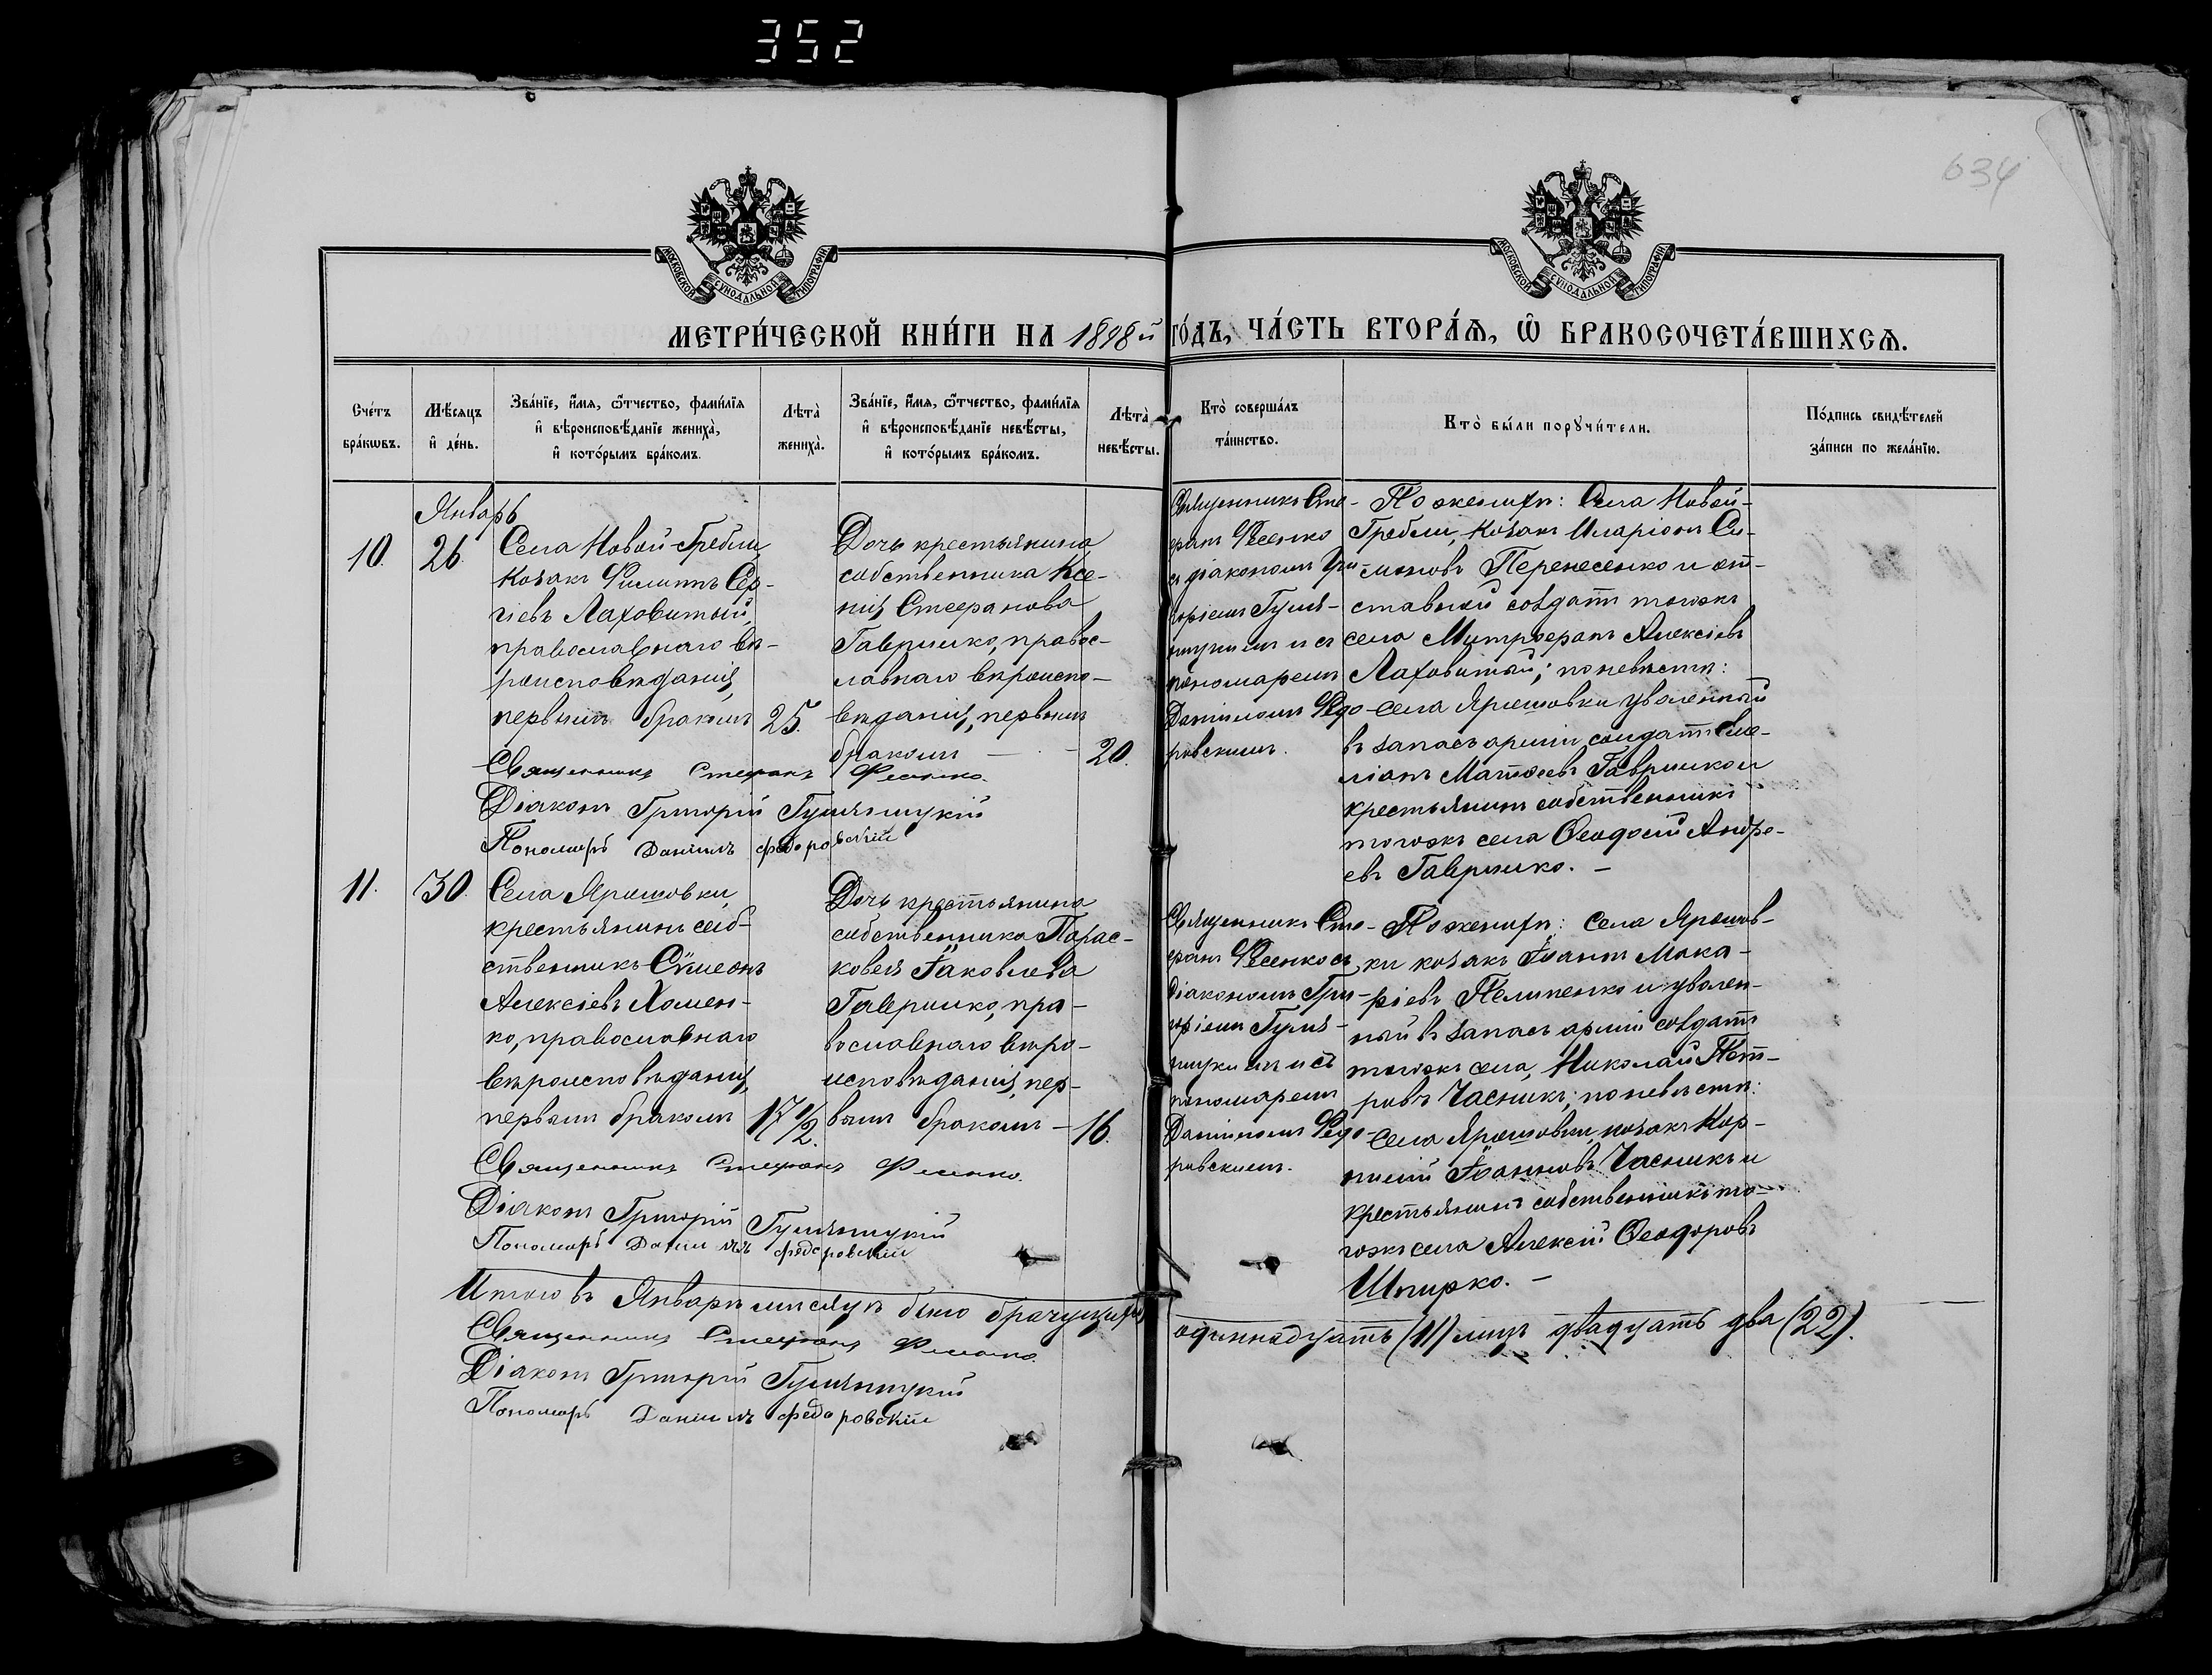 352
634
МОСКОВСКОЙ СѴНОДАЛЬНОЙ ТИПОГРАФІИ
МОСКОВСКОЙ СѴНОДАЛЬНОЙ ТИПОГРАФІИ
МЕТРИ́ЧЕСКОЙ КНИ́ГИ НА 1898й ГО́ДЪ, ЧА́СТЬ ВТОРА́Ѧ, Ѡ҆ БРАКОСОЧЕТА́ВШИХСѦ.
Сче́тъ
бра́кѡвъ.
Мѣ́сяцъ
и҆ де́нь.
Зва́нїе, и҆́мя, ѻ҆́тчество, фами́лїя
и҆ вѣроисповѣ́данїе жениха̀,
и҆ кото́рымъ бра́комъ.
Лѣта̀
жениха̀.
Зва́нїе, и҆́мя, ѻ҆́тчество, фами́лїя
и҆ вѣроисповѣ́данїе невѣ́сты,
и҆ кото́рымъ бра́комъ.
Лѣта̀
невѣ́сты.
Кто̀ соверша́лъ
та́инство.
Кто̀ бы́ли порꙋчи́тели.
По́дпись свидѣ́телей
за́писи по жела́нїю.
Январь
10.
26.
Села Новой-Гребли
козакъ Филиппъ Сер-
гіевъ Лаховитый,
православнаго вѣ-
роисповѣданія,
первымъ бракомъ
25.
Дочь крестьянина
собственника Ксе-
нія Стефанова
Гавришко, правос-
лавнаго вѣроиспо-
вѣданія, первымъ
бракомъ —
20.
Священникъ Сте-
фанъ Фесенко
съ діакономъ Гри-
горіемъ Гуля-
ницкимъ и съ
пономаремъ
Даніиломъ Федо-
ровскимъ.
По женихѣ: Села Новой-
Гребли, козакъ Иларіонъ Си-
моновъ Перенесенко и от-
ставной солдатъ тогожъ
села Митрофанъ Алексіевъ
Лаховитый; по невѣстѣ:
села Ярошовки уволенный
въ запасъ арміи солдатъ Еме-
ліанъ Матѳеевъ Гавришко и
крестьянинъ собственникъ
тогожъ села Ѳеодосій Андре-
евъ Гавришко. —
Священникъ Стефанъ Фесенко.
Діаконъ Григорій Гуляницкій
Пономарь Даніилъ Федоровскій
11.
30.
Села Ярошовки,
крестьянинъ соб-
ственникъ Сѵмеонъ
Алексіевъ Хомен-
ко, православнаго
вѣроисповѣданія,
первымъ бракомъ
17 1/2.
Дочь крестьянина
собственника Парас-
ковея Іаковлева
Гавришко, пра-
вославнаго вѣро-
исповѣданія, пер-
вымъ бракомъ —
16.
Священникъ Сте-
фанъ Фесенко съ
діакономъ Гри-
горіемъ Гуля-
ницкимъ и съ
пономаремъ
Даніиломъ Федо-
ровскимъ.
По женихѣ: села Ярошов-
ки козакъ Іоаннъ Мака-
ріевъ Пелипенко и уволен-
ный въ запасъ арміи солдатъ
тогожъ села, Николай Пет-
ровъ Часникъ; по невѣстѣ:
Села Ярошовки, козакъ Кор-
нилій Іоанновъ Часникъ и
крестьянинъ собственникъ то-
гожъ села Алексій Ѳеодоровъ
Шпирко. —
Священникъ Стефанъ Фесенко.
Діаконъ Григорій Гуляницкій
Пономарь Даніилъ Федоровскій
Итого въ Январѣ мѣсяцѣ было брачущихся одиннадцать (11) лицъ двадцать два (22).
Священникъ Стефанъ Фесенко.
Діаконъ Григорій Гуляницкій
Пономарь Даніилъ Федоровскій